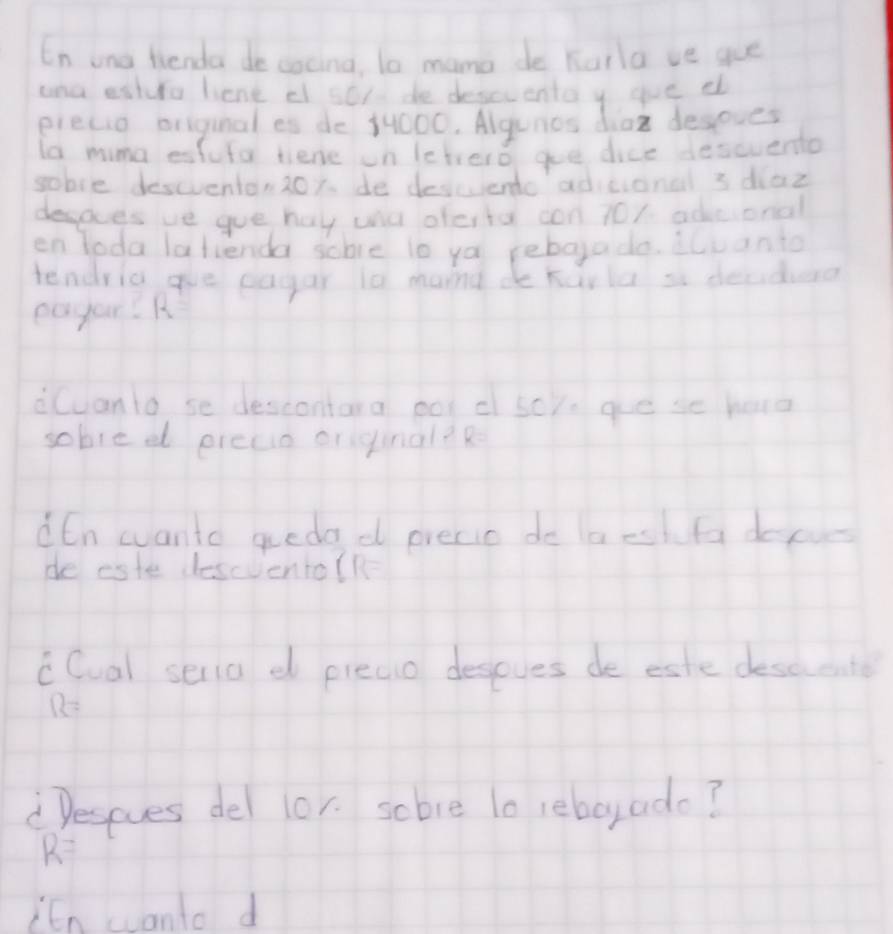 En una tienda de cocina, la mama de Karla ve que
una estufa tiene el 50% de descuento y que el
precio original es de $4000. Algunos diaz despues
la misma estufa tiene un letrero que dice descuento
sobre descuento n 20% de descuento adicional 3 diaz
despues ve que hay una oferta con 10% adicional
en toda la tienda sobre lo ya rebajado. ¿Cuanto
tendria que pagar la mama de Karla si decidiera
pagar? R=
¿Cuanto se descontara por el 50% que se hara
sobre el precio original? R=
¿En cuanto queda el precio de la estufa despues
de este descuento? R=
¿Cual seria el precio despues de este descuento
R=
¿Despues del 10% sobre lo rebajado?
R=
¿En cuanto d